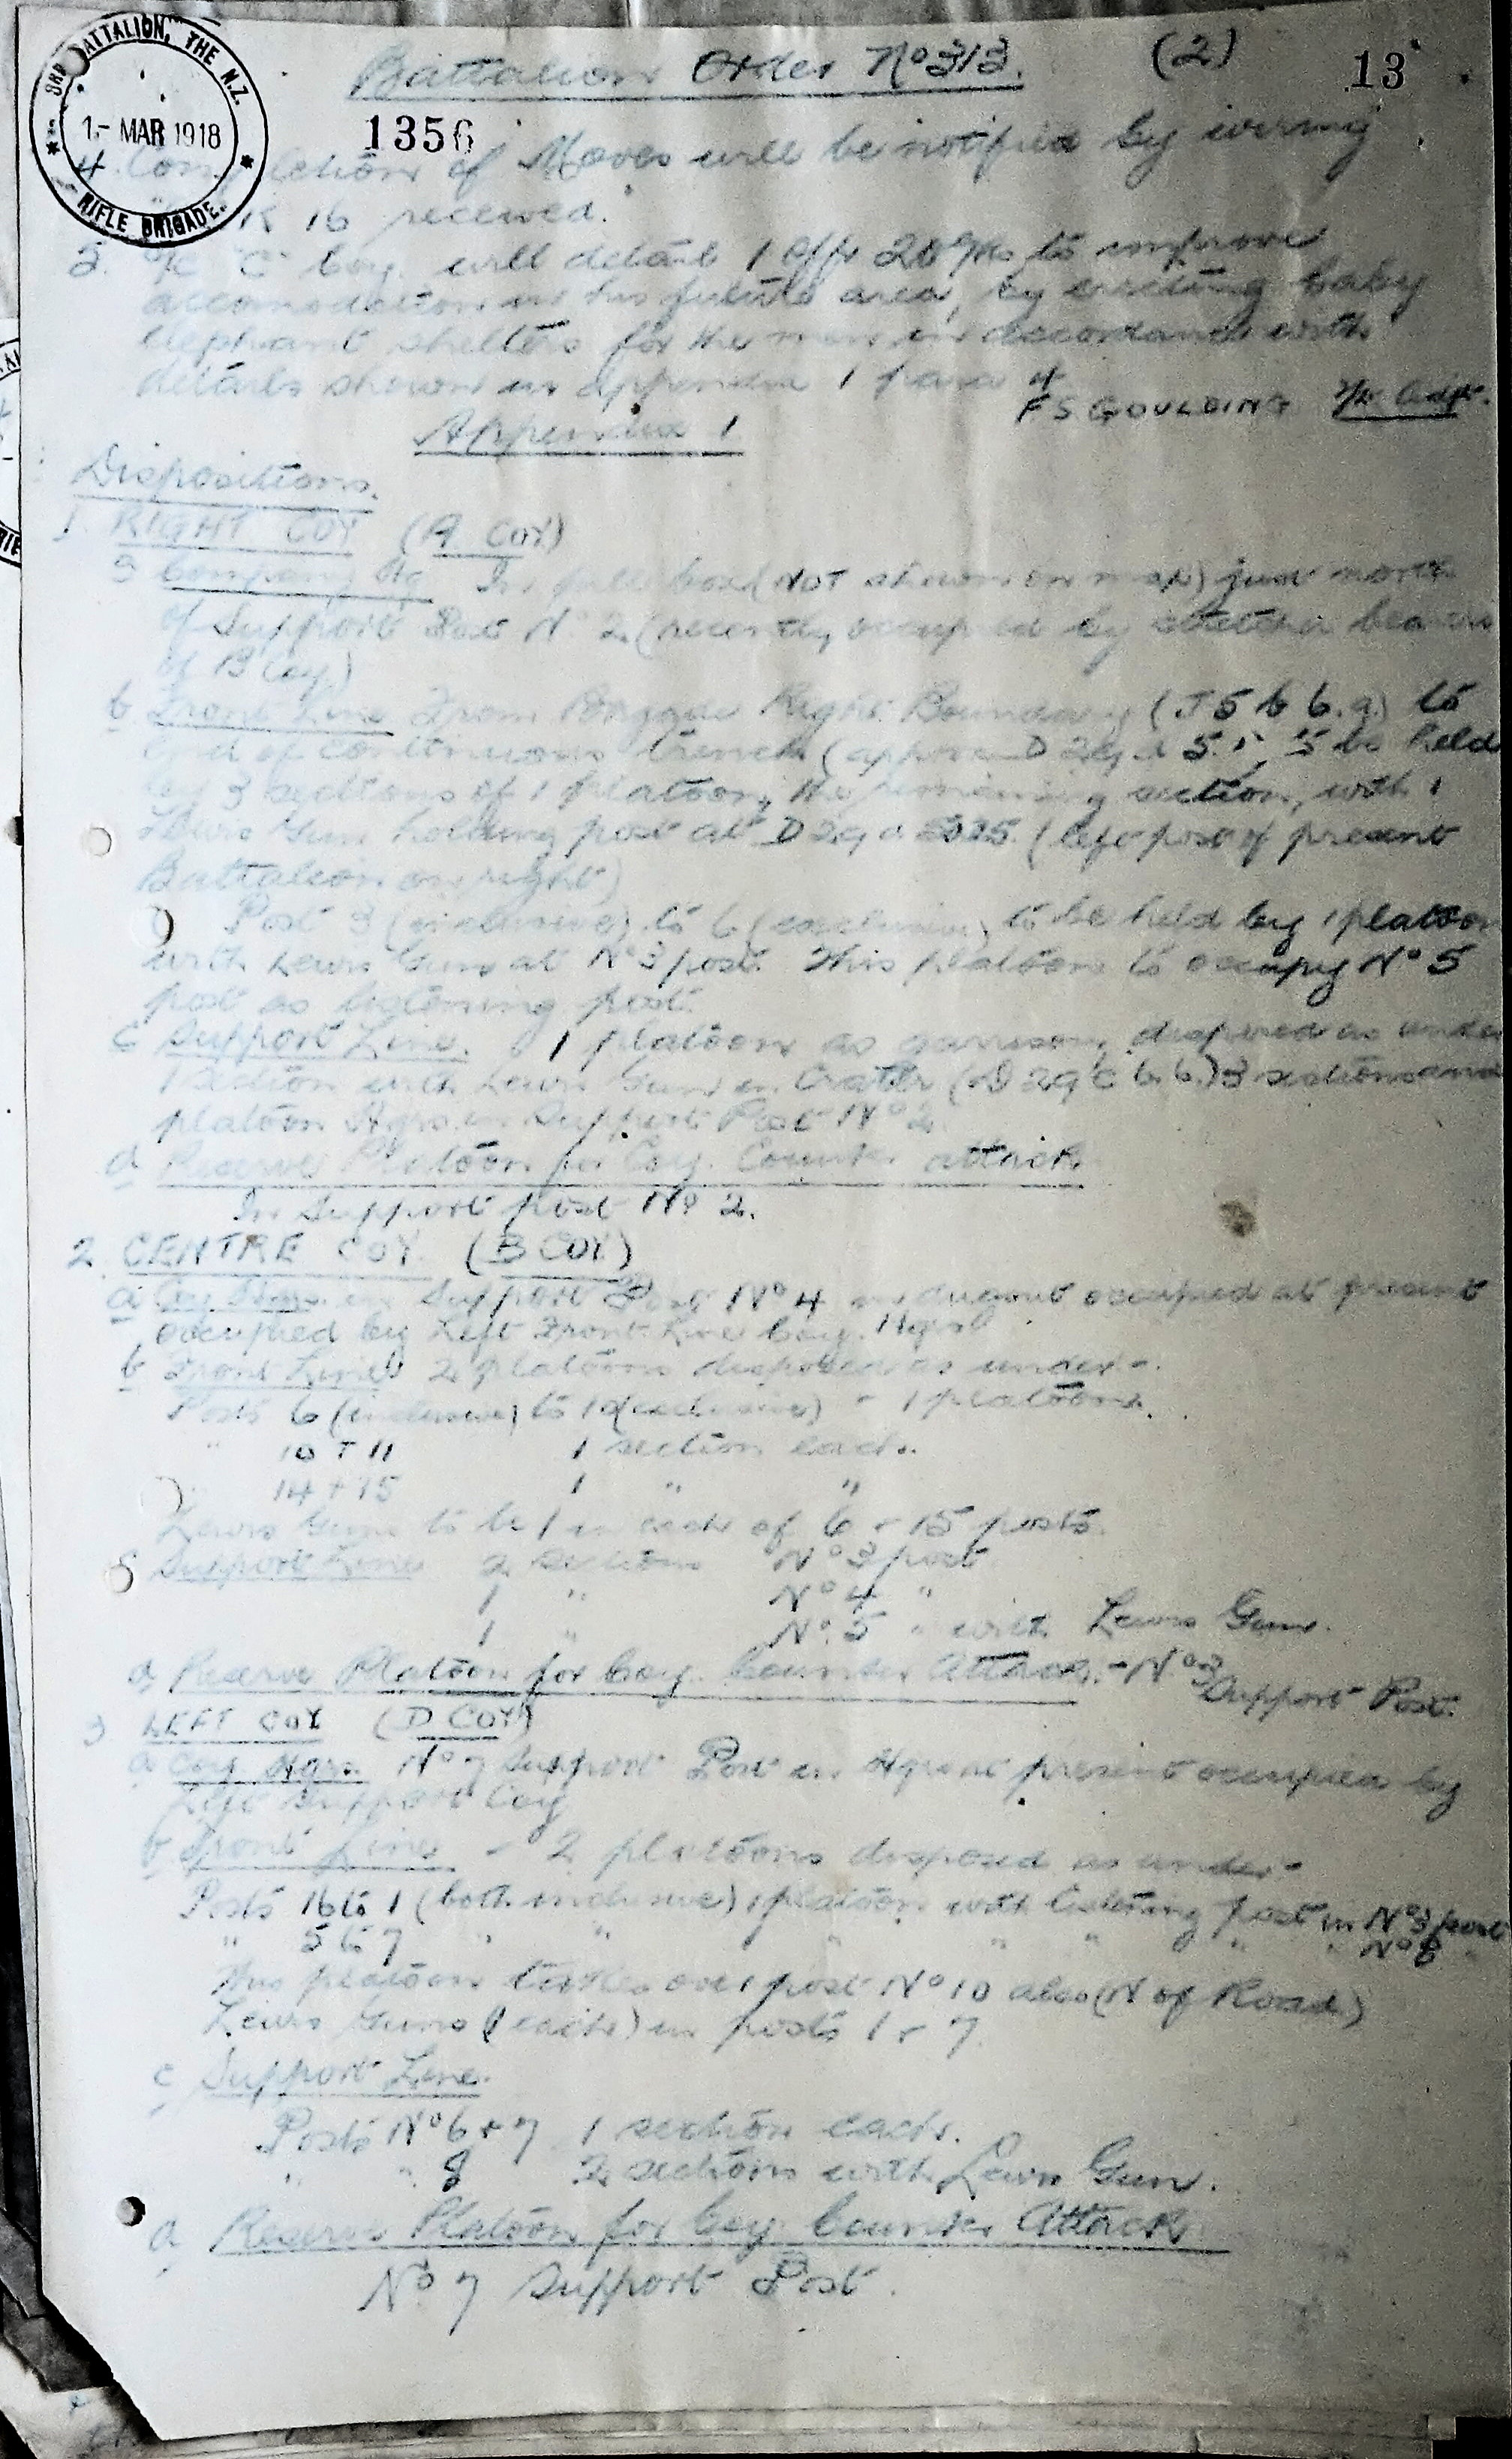 Battalion Order No 313. (2) 13
BATTALION, THE N.Z.
1 - MAR 1918
RIFLE BRIGADE.
1356
4. of Moves will be notified by wiring
16 received.
5. O/C "C" Coy. will detail 1 Offr 20 to improve
accomodation in his future area, by erecting baby
elephant shelters for the men in accordance with
details shown in Appendix 1 para 4
F S GOULDING Adjt.
Appendix 1
Dispositions.
1. RIGHT COY (A COY)
a Company Hq In pill box (NOT shown on map) just north
of Support Post No 2 (recently occupied by stretcher bearers
of B Coy)
b Front Line From Right Boundary (J 5 b 6.9.) to
end of continuous trench (approx D 29 5. 5 be held
by 3 sections of 1 platoon, the remaining section, with 1
Lewis Gun holding post at D 29 (left post of present
Battalion on right)
Post 3 (inclusive) to 6 (exclusive) to be held by 1 platoon
with Lewis Gun at No 3 post. This platoon to occupy No 5
post as listening post.
c Support Line. 1 platoon as garrison, disposed as under
1 section with Lewis Gun in Crater (D 29 c 6.6.) 3 sections and
platoon Hqrs. in Support Post No 2
d Reserve Platoon for Coy. Counter attack
In Support post No 2.
2. CENTRE COY. (B COY)
a Coy Hqrs. in Support Post No 4 in dugout occupied at present
occupied by Left Front Line Coy. Hqrs
b Front Line 2 platoons disposed as under -.
Posts 6 (inclusive) to 10 (exclusive) - 1 platoon.
" 10 + 11 1 section each.
" 14 + 15 1 " "
Lewis Guns to be 1 in each of 6 + 15 posts.
c Support Line 2 sections No 3 post
1 " No 4 "
1 " No 5 " with Lewis Gun.
d Reserve Platoon for Coy. Counter Attack. - No 3 Support Post.
3 LEFT COY (D COY)
a Coy Hqrs. No 7 Support Post in Hqrs at present occupied by
Left Support Coy
b Front Line - 2 platoons disposed as under -
Posts 16 to 1 (both inclusive) 1 platoon with listening post in No 3 post
" 5 to 7 " " " " " " " No 8 "
This platoon takes over post No 10 also (N of Road)
Lewis Guns (1 each) in posts 1 + 7
c Support Line.
Posts No 6 + 7 1 section each.
" " 8 2 sections with Lewis Gun.
d Reserve Platoon for Coy. Counter Attack
No 7 Support Post.